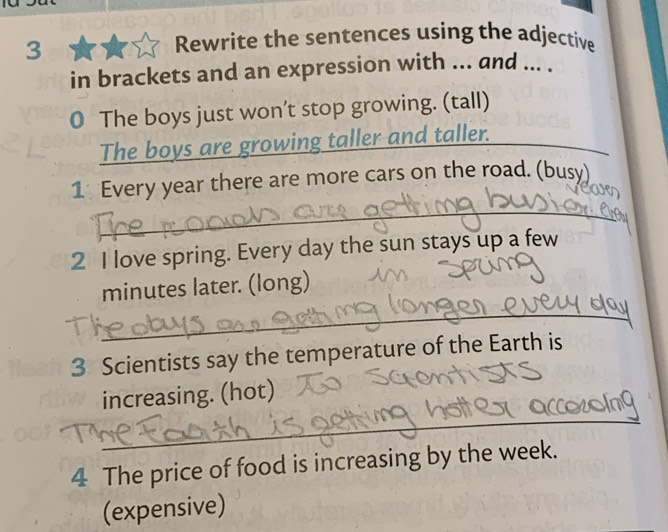 3 Rewrite the sentences using the adjective
in brackets and an expression with ... and ... .
0 The boys just won't stop growing. (tall)
The boys are growing taller and taller.
1 Every year there are more cars on the road. (busy)
years
The roads are getting busier every
2 I love spring. Every day the sun stays up a few
minutes later. (long) in spring
The days are getting longer every day
3 Scientists say the temperature of the Earth is
increasing. (hot) To scientists
The Earth is getting hotter according
4 The price of food is increasing by the week.
(expensive)